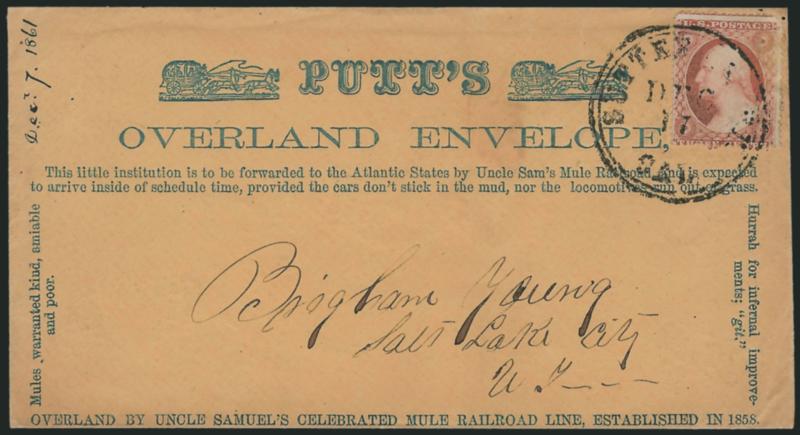 Dec. 7. 1861
PUTT'S
OVERLAND ENVELOPE,
This little institution is to be forwarded to the Atlantic States by Uncle Sam's Mule Railroad, and is expected
to arrive inside of schedule time, provided the cars don't stick in the mud, nor the locomotives run out of grass.
U.S. POSTAGE
SUTTER
DEC
17
CAL.
Mules warranted kind, amiable
and poor.
Brigham Young
Salt Lake City
U T
Hurrah for infernal improve-
ments; "git."
OVERLAND BY UNCLE SAMUEL'S CELEBRATED MULE RAILROAD LINE, ESTABLISHED IN 1858.